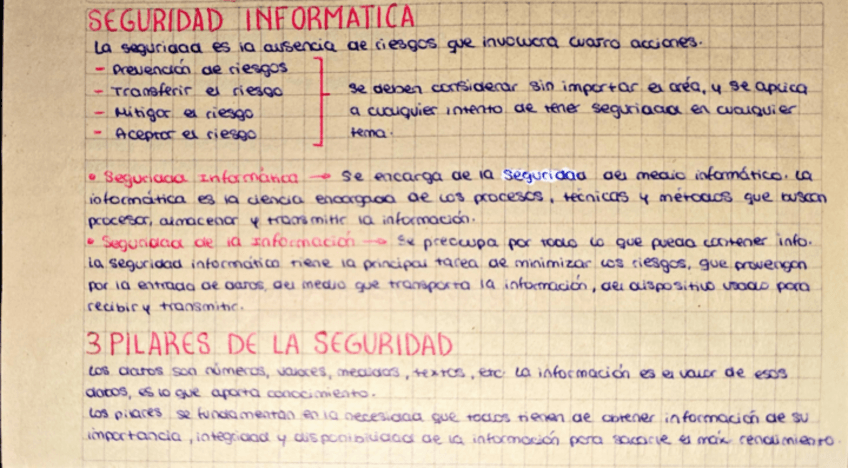 SEGURIDAD INFORMATICA
La seguridad es la ausencia de riesgos que involucra cuatro acciones.
- Prevención de riesgos
- Transferir el riesgo
- Mitigar el riesgo
- Aceptar el riesgo
Se deben considerar sin importar el aréa, y se aplica
a cualquier intento de tener seguridad en cualquier
tema.
• Seguridad Informática → Se encarga de la seguridad del medio informático. La
informática es la ciencia encargada de los procesos, técnicas y métodos que buscan
procesar, almacenar y transmitir la información.
• Seguridad de la Información → Se preocupa por todo lo que pueda contener info.
La seguridad informática tiene la principal tarea de minimizar los riesgos, que provengan
por la entrada de datos, del medio que transporta la información, del dispositivo usado para
recibir y transmitir.
3 PILARES DE LA SEGURIDAD
Los datos son números, valores, medidas, textos, etc. La información es el valor de esos
datos, es lo que aporta conocimiento.
Los pilares se fundamentan en la necesidad que todos tienen de obtener información de su
importancia, integridad y disponibilidad de la información para sacarle el máx rendimiento.